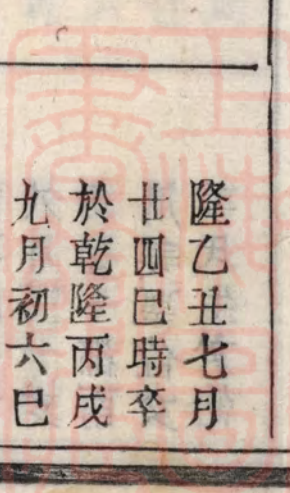 隆乙丑七月
廿四巳時卒
於乾隆丙戌
九月初六巳